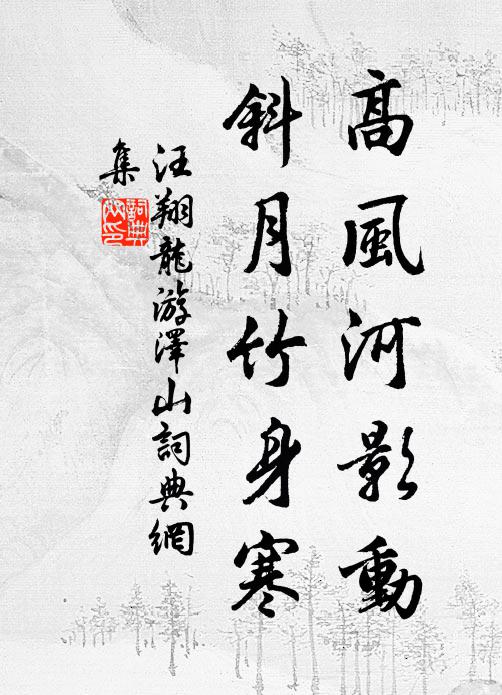 高風河影動
斜月竹身寒
汪翔龍游澤山詞典網
集
詞典
网印